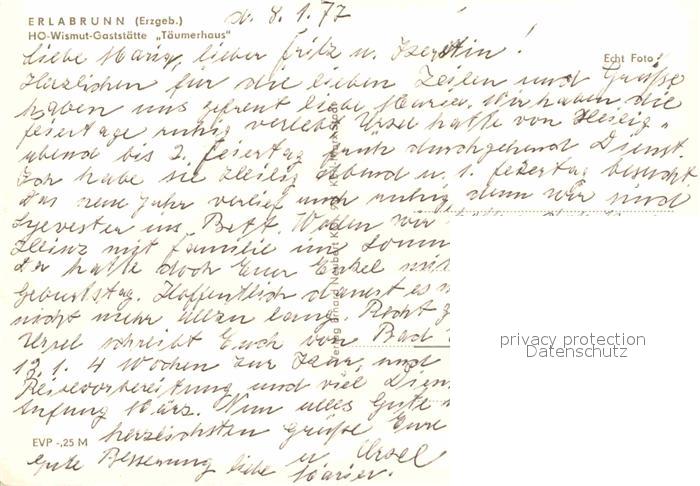 ERLABRUNN (Erzgeb.)
HO-Wismut-Gaststätte „Täumerhaus"
Echt Foto
d. 8.1.77
Liebe Marie, lieber Fritz u. Kerstin!
Herzlichen für die lieben Zeilen und Grüße
haben uns gefreut liebe Marie. Wir haben die
Feiertage ruhig verlebt Ursel hatte von Heilig-
abend bis 2. Feiertag früh durchgehend Dienst.
Ich habe sie Heilig Abend u. 1. Feiertag besucht
Das neue Jahr verlief auch ruhig, denn wir sind
Sylvester ins Bett. Wollen wir
Heinz mit Familie im Somm
Da hatte doch Euer Enkel mit
Geburtstag. Hoffentlich dauert es n
nicht mehr allzu lang. Recht g
Ursel schreibt Euch von Bad
13.1. 4 Wochen zur Kur, und
Reisevorbereitung und viel Diens
Anfang März. Nun alles Gute
herzlichsten Grüße Eure
Gute Besserung liebe u. Ursel
Marie.
EVP -,25 M
privacy protection
Datenschutz